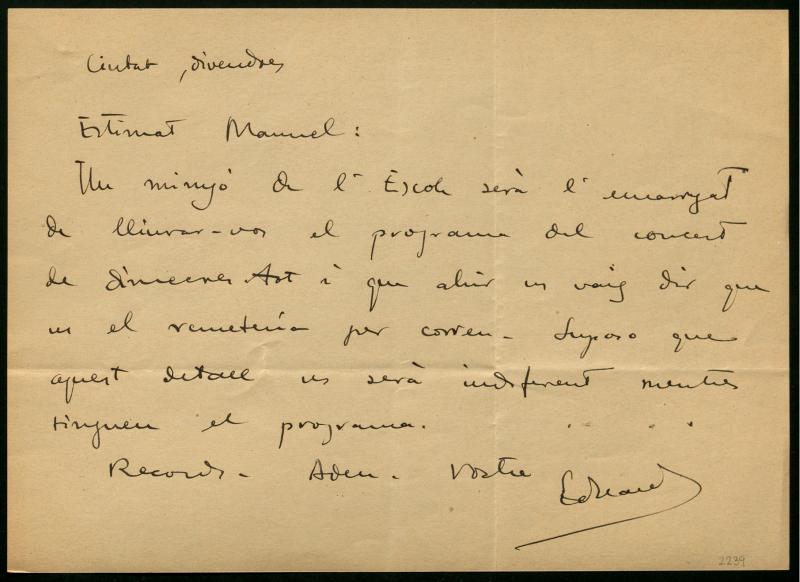 Ciutat, divendres
Estimat Manuel:
Un minyó de l'Escola serà l'encarregat
de lliurar-vos el programa del concert
de dimecres i que ahir us vaig dir que
us el remetería per correu. Suposo que
aquest detall us serà indiferent mentres
tingueu el programa.
Records. Adeu. Vostre
Eduard
2239